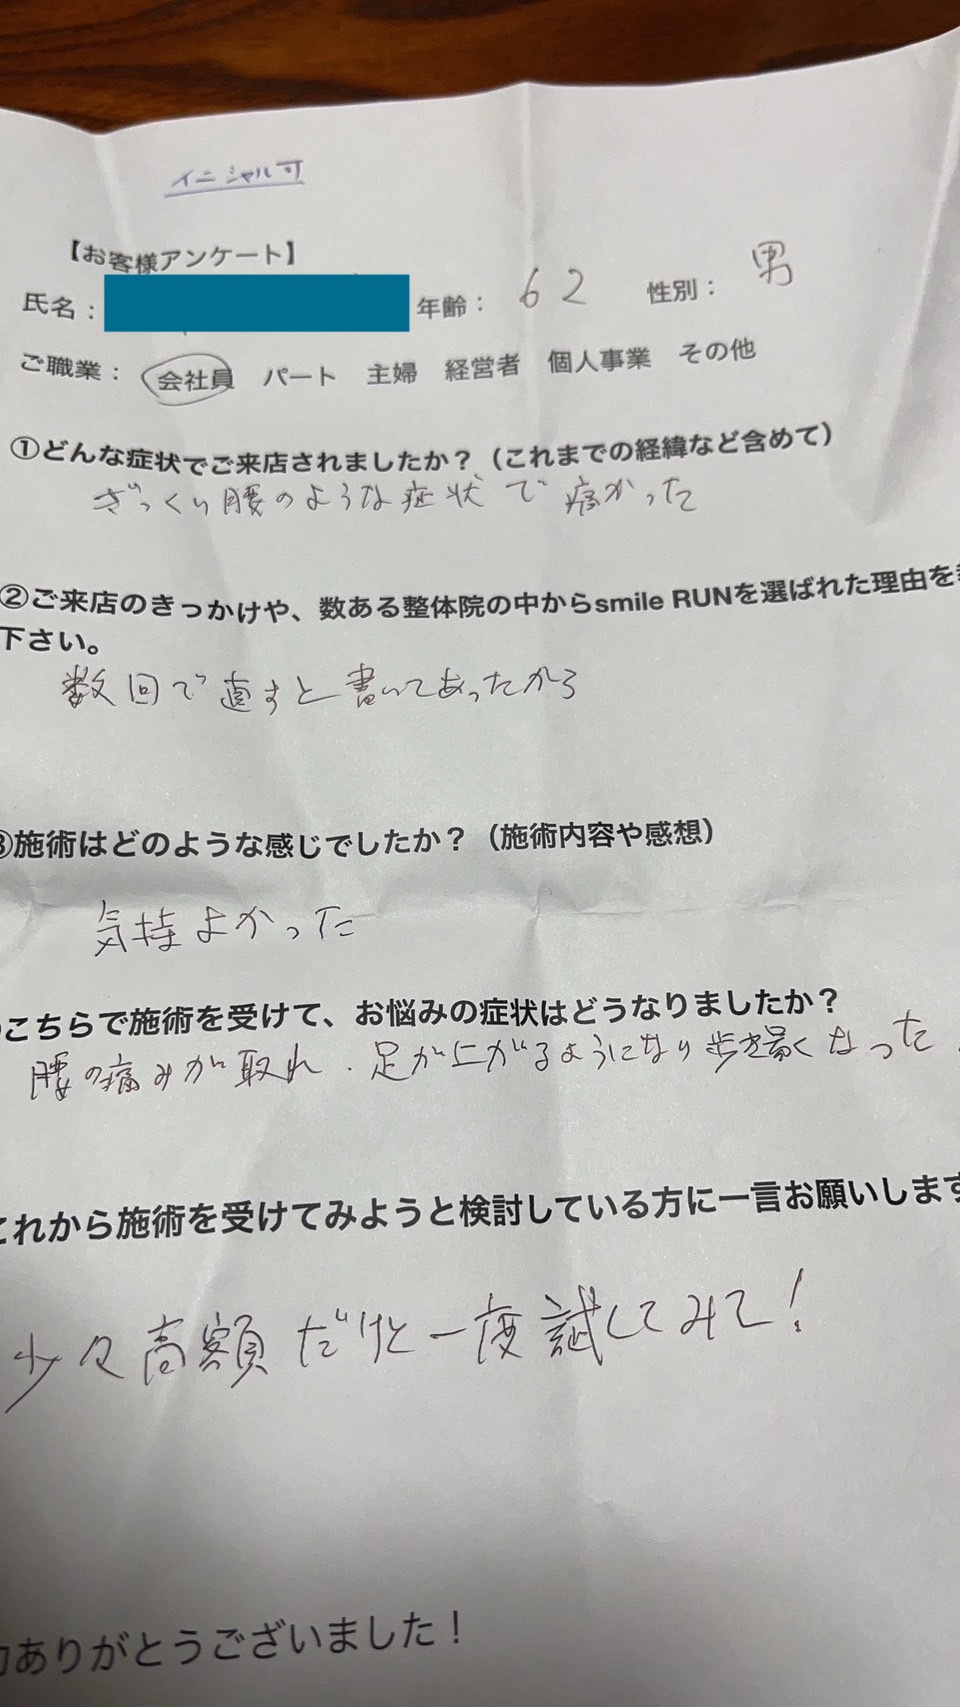 イニシャル可
【お客様アンケート】
氏名： 年齢： 62 性別： 男
ご職業： 会社員 パート 主婦 経営者 個人事業 その他
①どんな症状でご来店されましたか？（これまでの経緯など含めて）
ぎっくり腰のような症状で痛かった
②ご来店のきっかけや、数ある整体院の中からsmile RUNを選ばれた理由を
下さい。
数回で直すと書いてあったから
③施術はどのような感じでしたか？（施術内容や感想）
気持よかった
こちらで施術を受けて、お悩みの症状はどうなりましたか？
腰の痛みが取れ、足が上がるようになり歩き易くなった。
これから施術を受けてみようと検討している方に一言お願いします
少々高額だけど一度試してみて！
ありがとうございました！